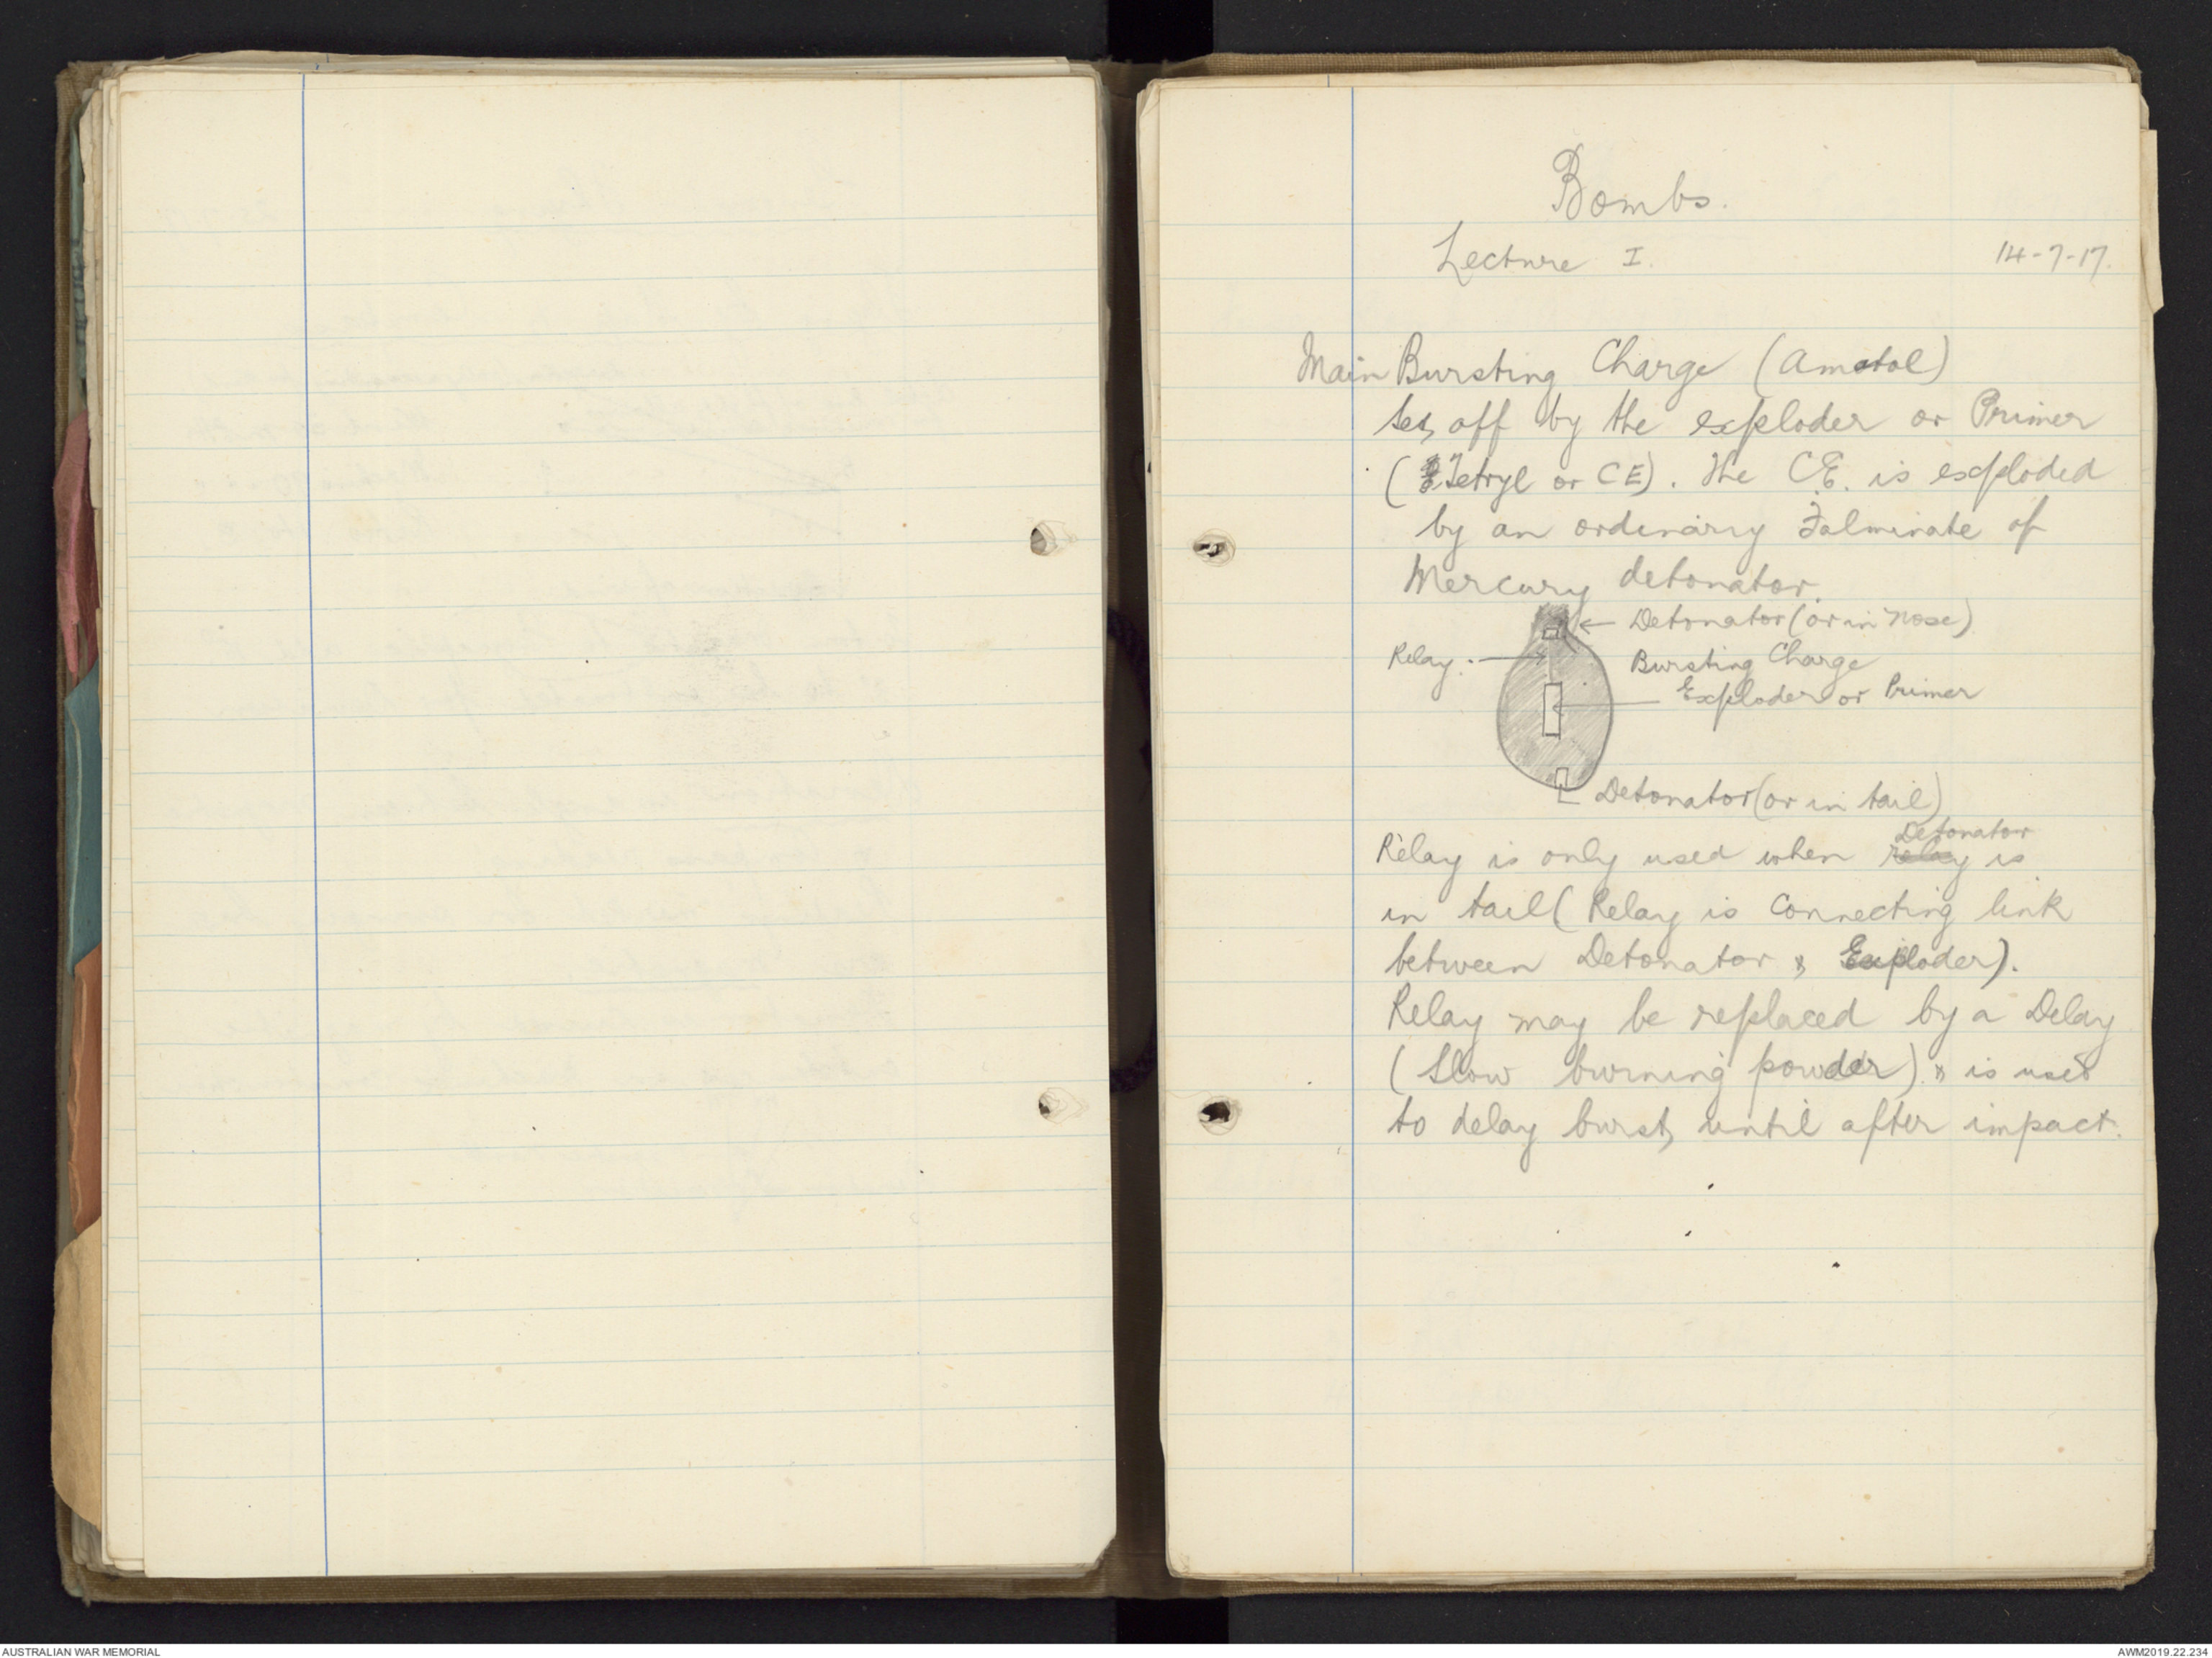 Bombs.
Lecture I. 14-7-17.
Main Bursting Charge (Amatol)
set off by the exploder or Primer
(Tetryl or CE). The C.E. is exploded
by an ordinary Fulminate of
Mercury detonator.
← Detonator (or in nose)
Relay. Bursting Charge
Exploder or Primer
Detonator (or in tail)
Detonator
Relay is only used when relay is
in tail (Relay is connecting link
between Detonator & Exploder).
Relay may be replaced by a Delay
(Slow burning powder) & is used
to delay burst until after impact.
AUSTRALIAN WAR MEMORIAL AWM2019.22.234